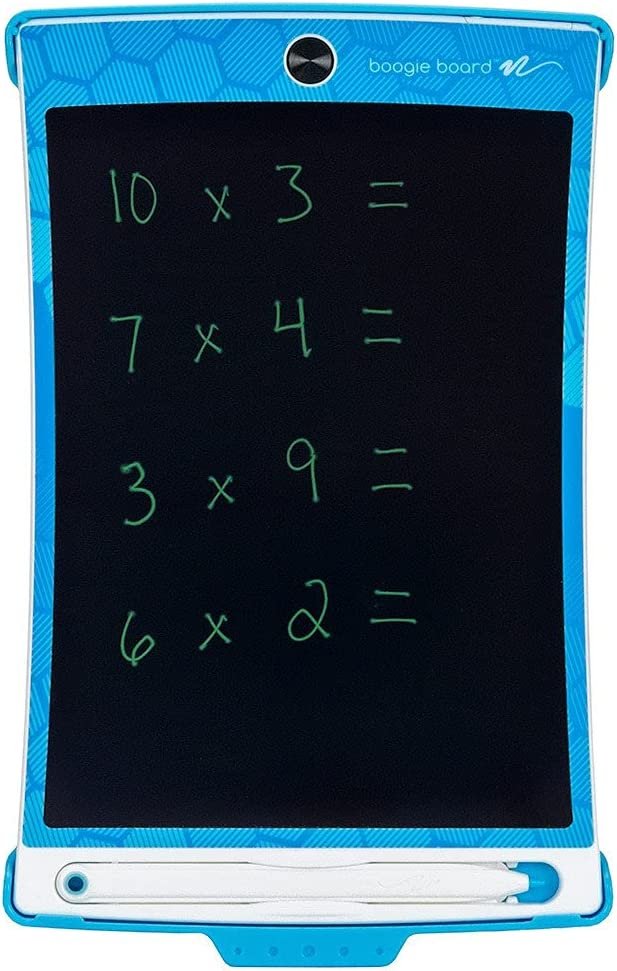 boogie board
10 x 3 =
7 x 4 =
3 x 9 =
6 x 2 =